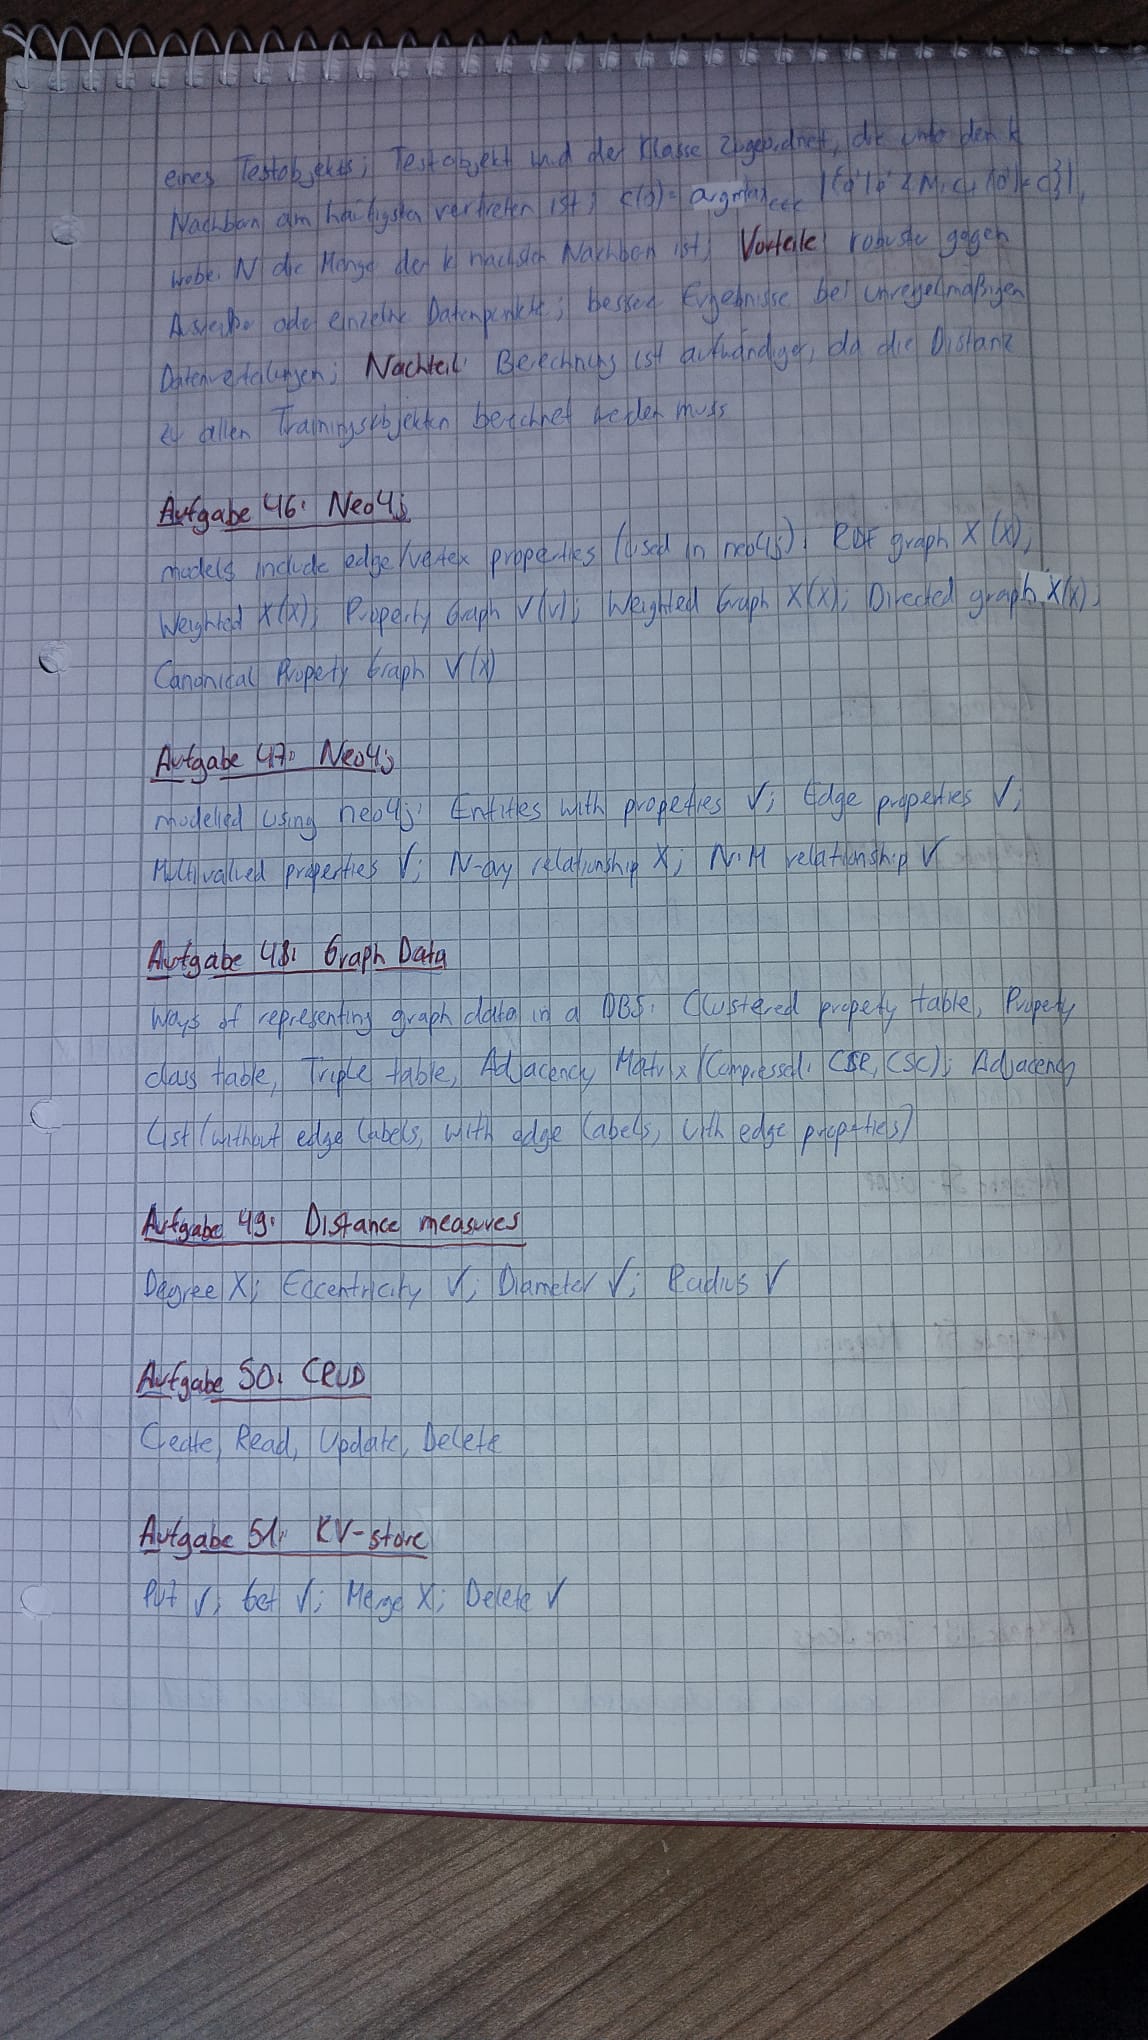 eines Testobjekts; Testobjekt wird der Klasse zugeordnet, die unter den k
Nachbarn am häufigsten vertreten ist; c(o) = argmax c∈C |{o'|o' ∈ N, c(o') = c}|,
wobei N die Menge der k nächsten Nachbarn ist; Vorteile: robuster gegen
Ausreißer oder einzelne Datenpunkte; bessere Ergebnisse bei unregelmäßigen
Datenverteilungen; Nachteil: Berechnung ist aufwändiger, da die Distanz
zu allen Trainingsobjekten berechnet werden muss
Aufgabe 46: Neo4j
models include edge/vertex properties (used in neo4j): RDF graph X (X);
Weighted X(X); Property Graph V(V); Weighted Graph X(X); Directed graph X(X);
Canonical Property Graph V(X)
Aufgabe 47: Neo4j
modelled using neo4j: Entities with properties V; Edge properties V;
Multivalued properties V; N-ary relationship X; N:M relationship V
Aufgabe 48: Graph Data
Ways of representing graph data in a DBS: Clustered property table, Property
class table, Triple table, Adjacency Matrix (Compressed: CSR, CSC); Adjacency
List (without edge labels, with edge labels, with edge properties)
Aufgabe 49: Distance measures
Degree X; Eccentricity V; Diameter V; Radius V
Aufgabe 50: CRUD
Create, Read, Update, Delete
Aufgabe 51: KV-store
Put V; Get V; Merge X; Delete V